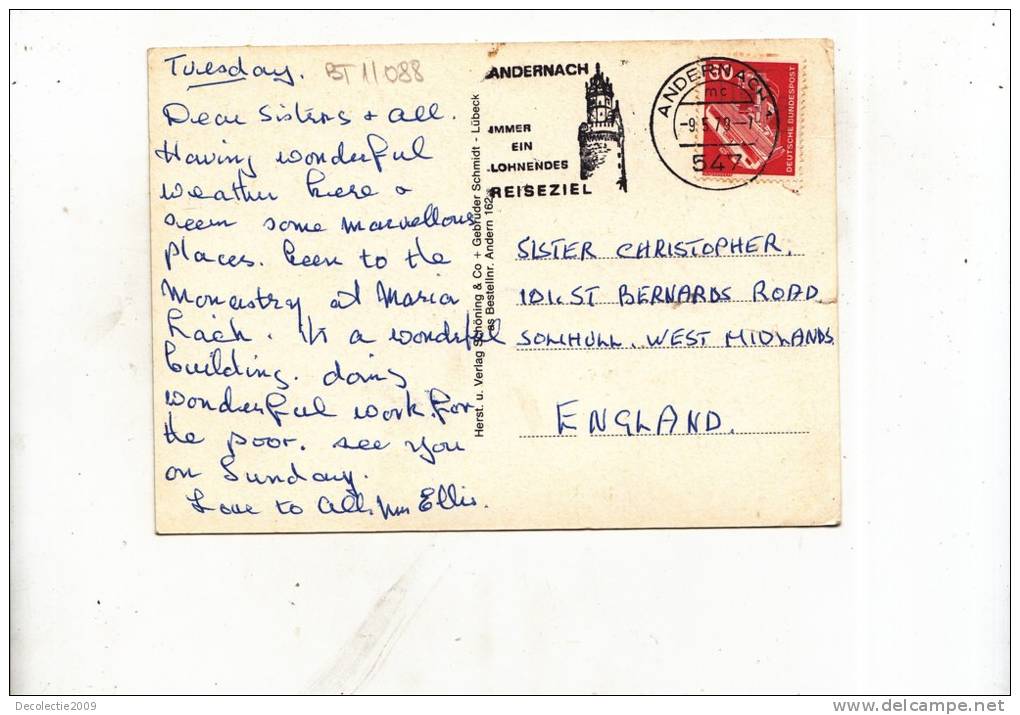 Tuesday. BT 11088
Dear Sisters + all.
Having wonderful
weather here &
seen some marvellous
places. been to the
Monastry at Maria
Laach. It's a wonderful
building. doing
wonderful work for
the poor. see you
on Sunday.
Love to All. Mrs Ellis.
Herst. u. Verlag Schöning & Co + Gebrüder Schmidt - Lübeck
es Bestellnr. Andern 162
ANDERNACH
IMMER
EIN
LOHNENDES
REISEZIEL
ANDERNACH 1
mc
-9.5.79.-
547
60
DEUTSCHE BUNDESPOST
SISTER CHRISTOPHER.
101. ST BERNARDS ROAD
SOLIHULL. WEST MIDLANDS
ENGLAND.
Decolectie2009
www.delcampe.net